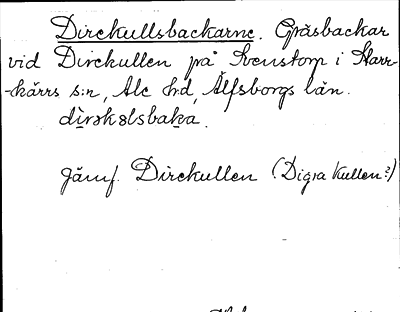 Dirckullsbackarne. Gräsbackar
vid Dirckullen på Svenstorp i Starr-
-kärrs s:n, Ale h:d, Älfsborgs län.
Jämf. Dirckullen (Digra Kullen?)